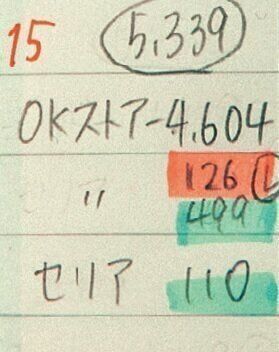 15 5,339
OKストアー4.604
126
〃 499
セリア 110